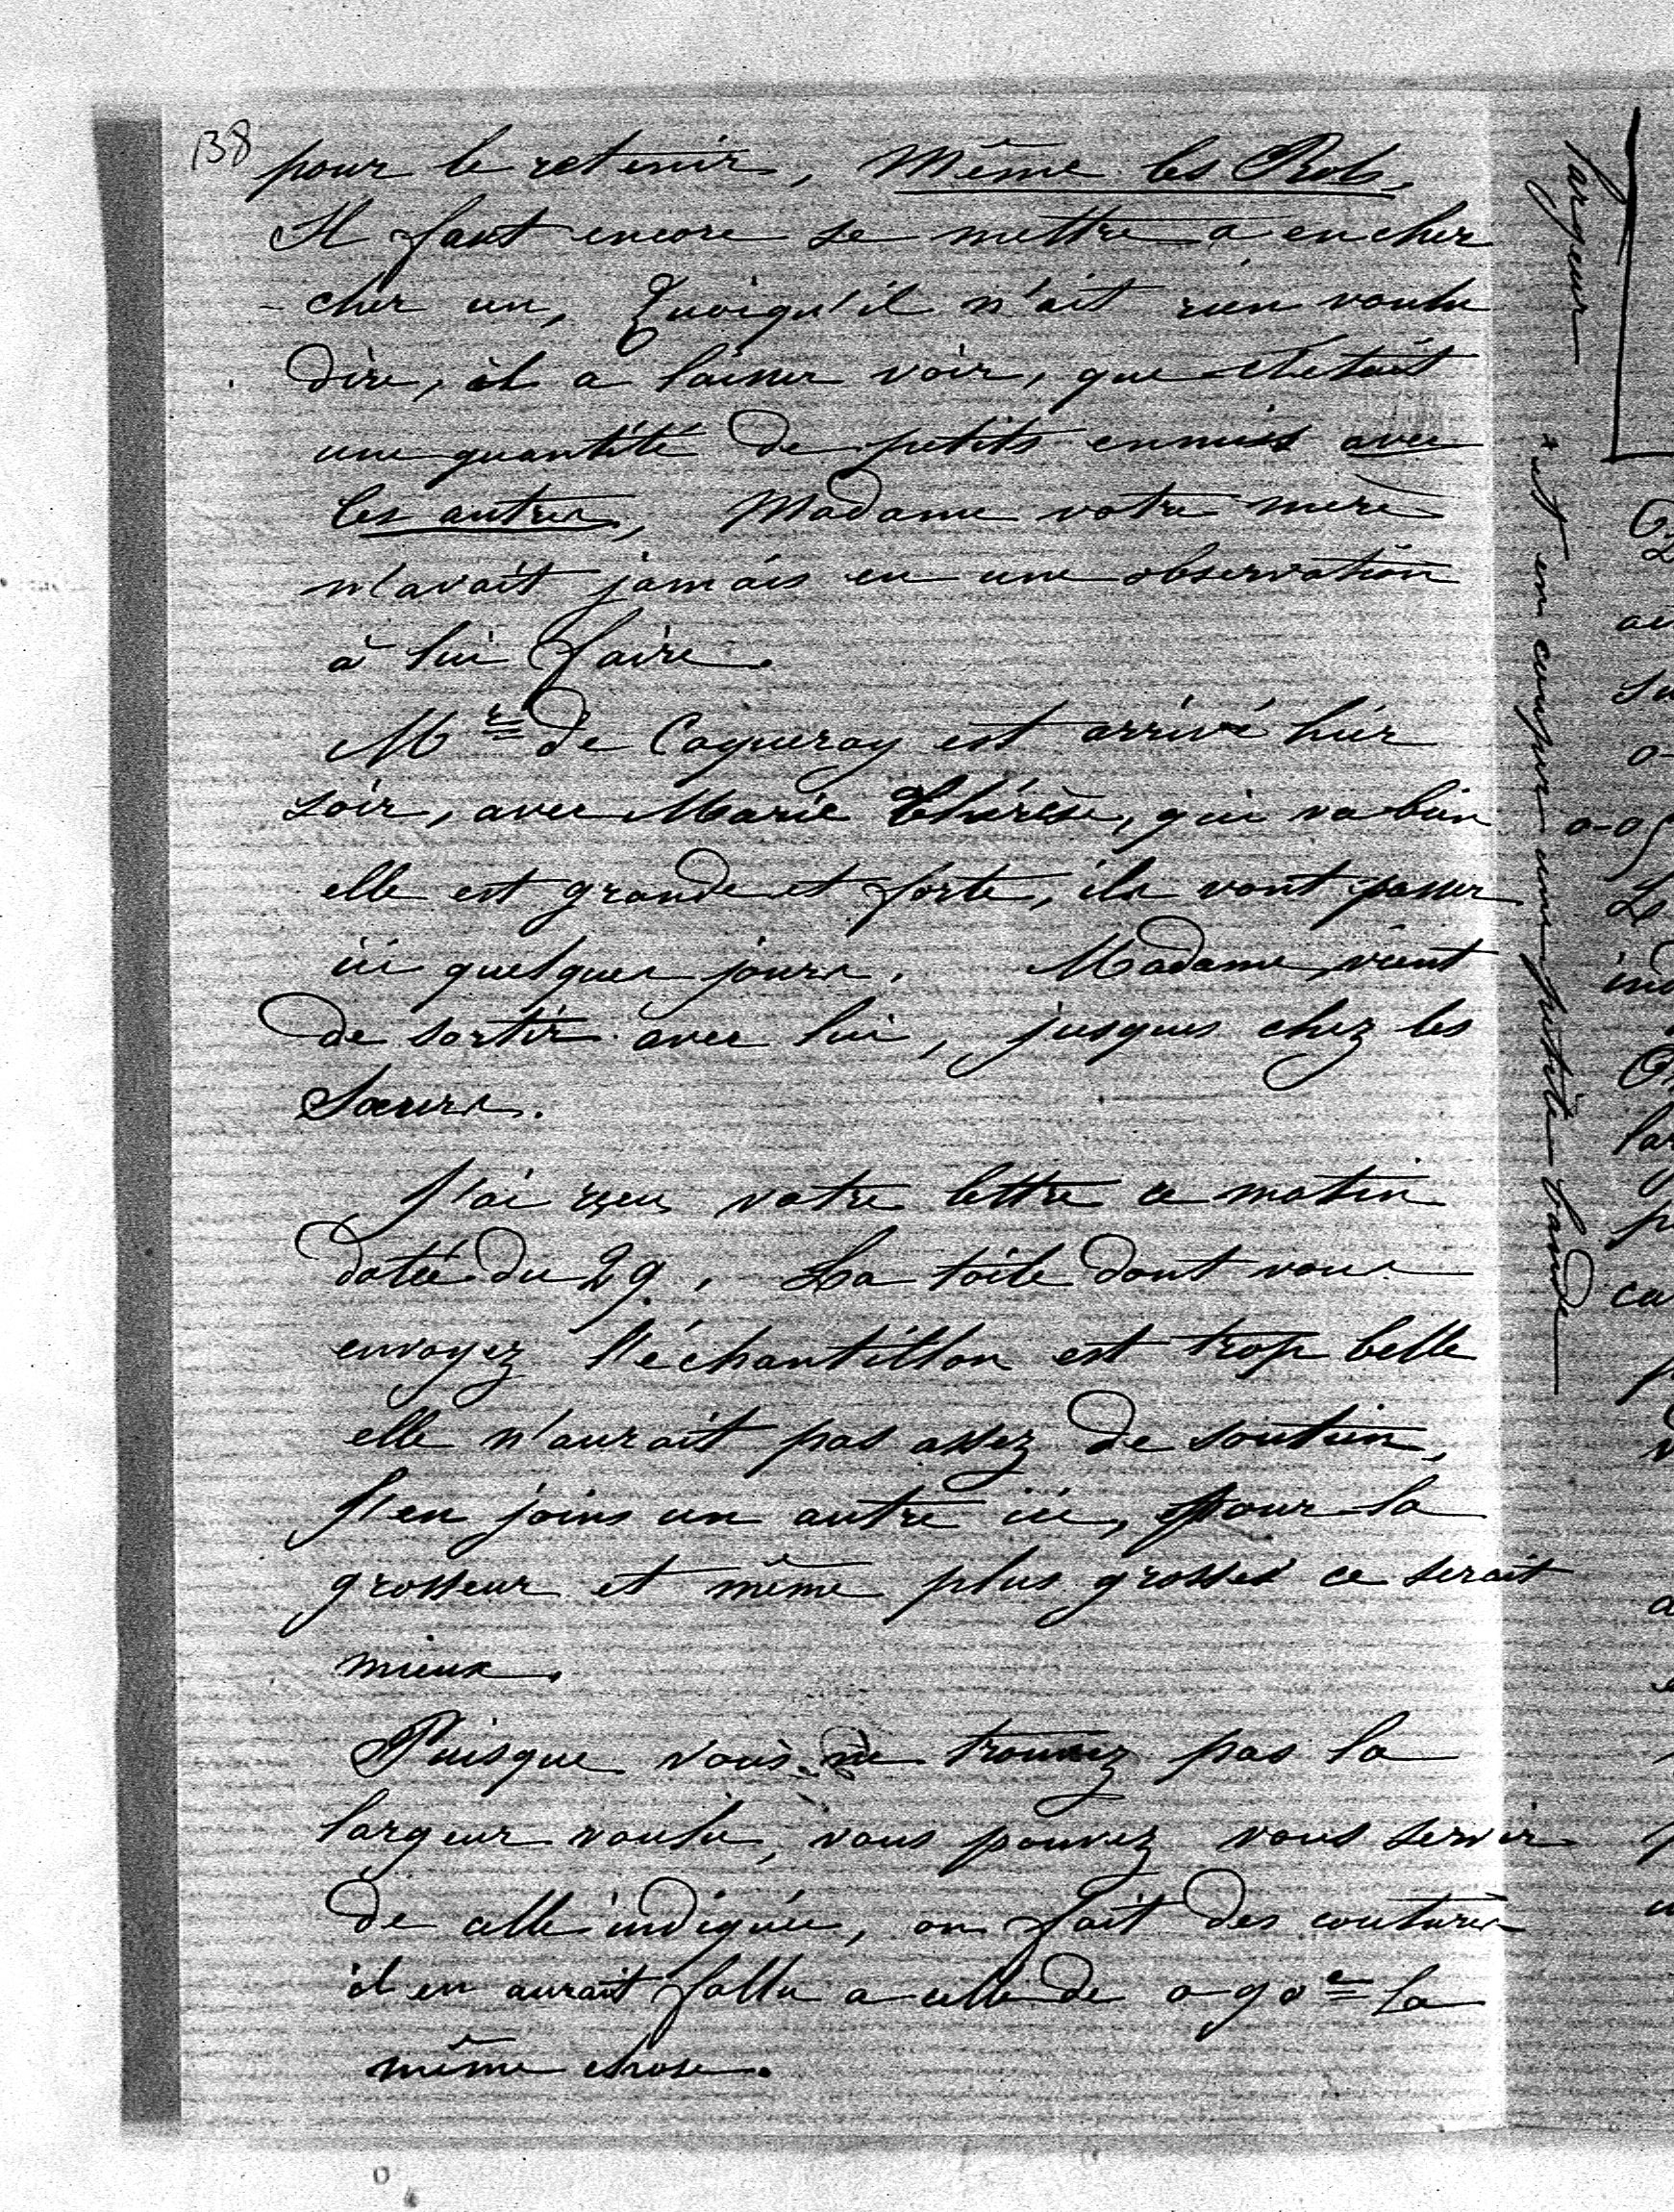 138
pour le retenir, Même les Rob.
Il faut encore se mettre a en cher
- cher un, Quoiqu'il n'ait rien voulu
dire, il a laisser voir, que c'était
une quantité de petits ennuis avec
les autres, Madame votre mère
n'avait jamais eu une observation
à lui faire.
Mr de Caqueray est arrivé hier
soir, avec Marie Thérèse, qui va bien
elle est grande et forte, ils vont passer
ici quelques jours. Madame vient
de sortir avec lui, jusques chez les
Sœurs.
J'ai reçu votre lettre ce matin
datée du 29. La toile dont vous
envoyez l'échantillon est trop belle
elle n'aurait pas assez de soutien,
J'en joins un autre ici, pour la
grosseur et même plus grosse ce serait
mieux.
Puisque vous ne trouvez pas la
largeur voulu, vous pouvez vous servir
de celle indiquée, on fait des coutures
il en aurait fallu a celle de 0 90c la
même chose.
largeur
+ et en couper une petite bande